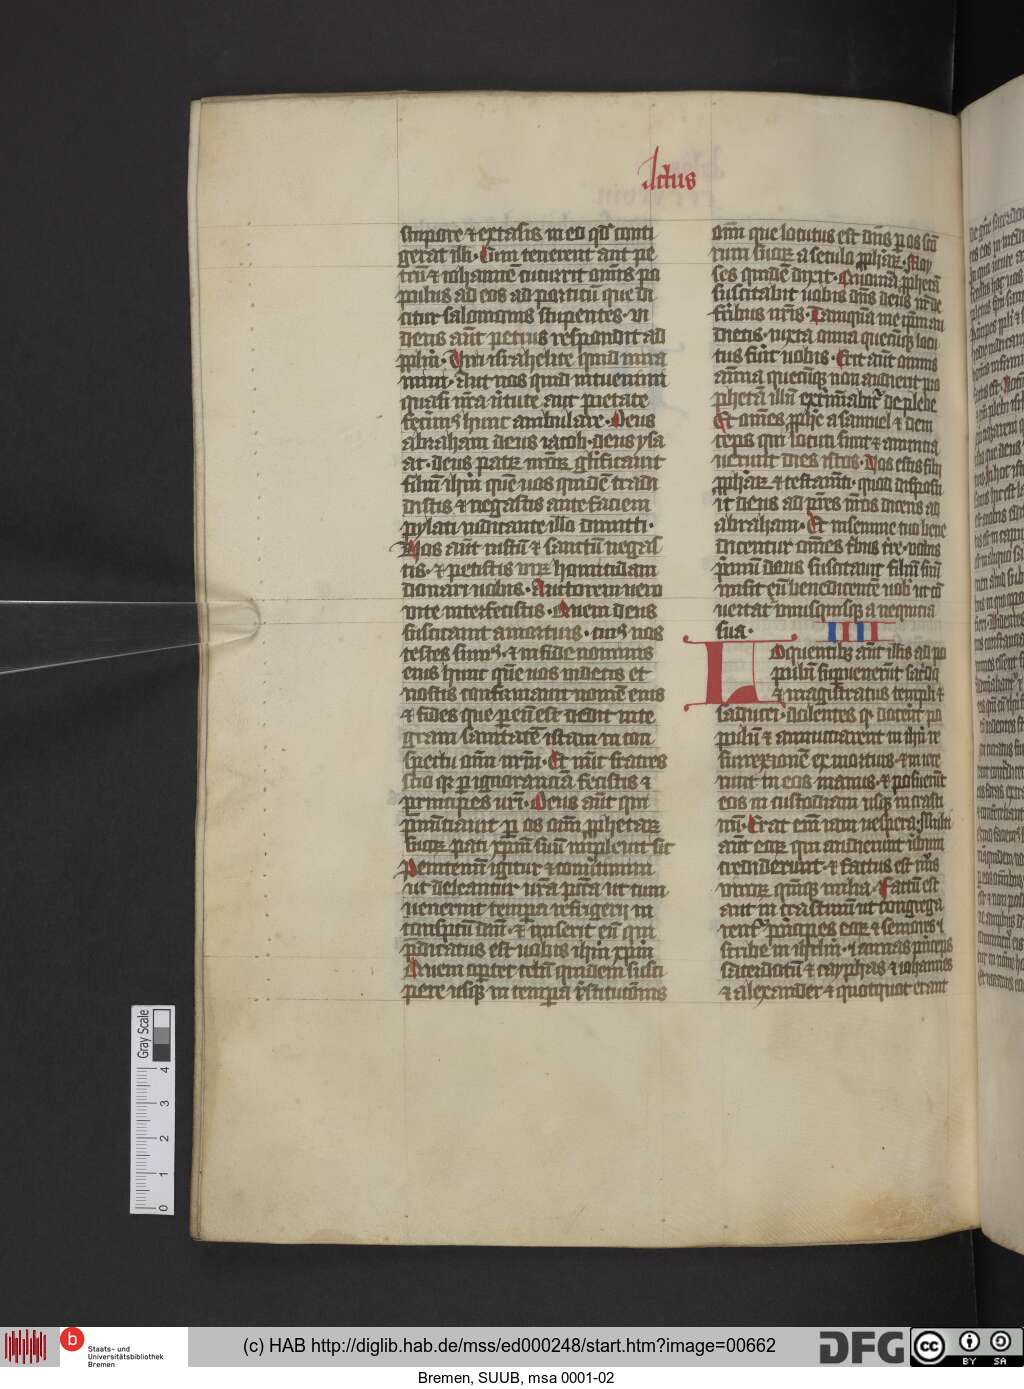 Actus
stupore ⁊ extasis in eo qd̄ conti
gerat illi. Cum tenerent aut̄ pe
trū ⁊ iohannē cucurrit om̄is po
pulus ad eos ad porticū que di
citur salomonis stupentes. Vi
dens aut̄ petrus respondit ad
pplm̄. Viri israhelite quid mira
mini. Aut nos quid intuemini
quasi nr̄a v̄tute aut pietate
fecim⁹ hunc ambulare. Deus
abraham deus iacob. deus ysa
ac. deus patrꝝ nr̄oꝝ glificauit
filiū ihm̄ quē uos quidē tradi
distis ⁊ negastis ante faciem
pylati iudicante illo dimitti.
Uos aut̄ iustū ⁊ sanctū negas
tis. ⁊ petistis uirꝝ homicidam
donari uobis. Auctorem uero
uite interfecistis. Quem deus
suscitauit a mortuis. cui⁹ nos
testes sum⁹. ⁊ in fide nominis
eius hunc quē uos uidetis et
nostis confirmauit nomē eius
⁊ fides que p eū est dedit inte
gram sanitatē istam in con
spectu om̄i urm̄. Et nūc fratres
scio qr p ignoranciā fecistis ⁊
principes urī. Deus aut̄ qui
p̄nūciauit p os om̄i pphetaꝝ
suoꝝ pati xpm̄ suū impleuit sic
Penitemī igitur ⁊ conūtimini
ut deleantur ur̄a pctā ut cum
uenerint tempora refrigerii in
conspctū dn̄i. ⁊ miserit eū qui
pdicatus est uobis ihm̄ xpm̄
Quem oportet celū quidem susci
pere usq̢ in tempora r̄stitucōnis
om̄i que locutus est dn̄s p os sc̄tū
rum suoꝝ a seculo pphaꝝ. Moy
ses quidē dixit. Quoniā pphetā
suscitabit uobis dn̄s deus ur̄ de
fr̄ibus ur̄is. Tamquā me ipm̄ au
dietis. iuxta omnia quecūq̢ locu
tus fūit uobis. Erit aut̄ omnis
aīma quecūq̢ non audierit pro
phetā illū ext̄minabit̄ de plebe
Et om̄es pphe a samuel ⁊ dein
ceps qui locuti sunt ⁊ annuncia
uerunt dies istos. Vos estis filii
pphaꝝ ⁊ testam̄ti. quod disposu
it deus ad pr̄es nr̄os dicens ad
abraham. Et in semine tuo bene
dicentur om̄es familie terre. Vobis
p̄mū deus suscitauit filiū suū
misit eū benedicentē uob̄ ut cō
uertat̄ unusquisq̢ a nequicia
sua. IIII
Loquentib⁹ aut̄ illis ad po
pulū supuenerūt sacd̄o
⁊ magistratus templi ⁊
saducei. dolentes qr docerēt po
pulū ⁊ annunciarent in ihū re
surrexionē ex mortuis. ⁊ iniece
runt in eos manus. ⁊ posuerūt
eos in custodiam usq̢ in crasti
nū. Erat em̄ iam uespera. Multi
aut̄ eoꝝ qui audierunt ūbum
crediderunt. ⁊ factus est nūs
uiroꝝ quinq̢ milia. Factū est
aut̄ in crastinū ut congrega
rent̄ pincipes eoꝝ ⁊ seniores ⁊
scribe in ihrlm̄. ⁊ annas p̄nceps
sacerdotū ⁊ cayphas ⁊ iohannes
⁊ alexander ⁊ quotquot erant
Gray Scale
0 1 2 3 4
b
Staats- und
Universitätsbibliothek
Bremen
(c) HAB http://diglib.hab.de/mss/ed000248/start.htm?image=00662
DFG
cc
BY SA
Bremen, SUUB, msa 0001-02